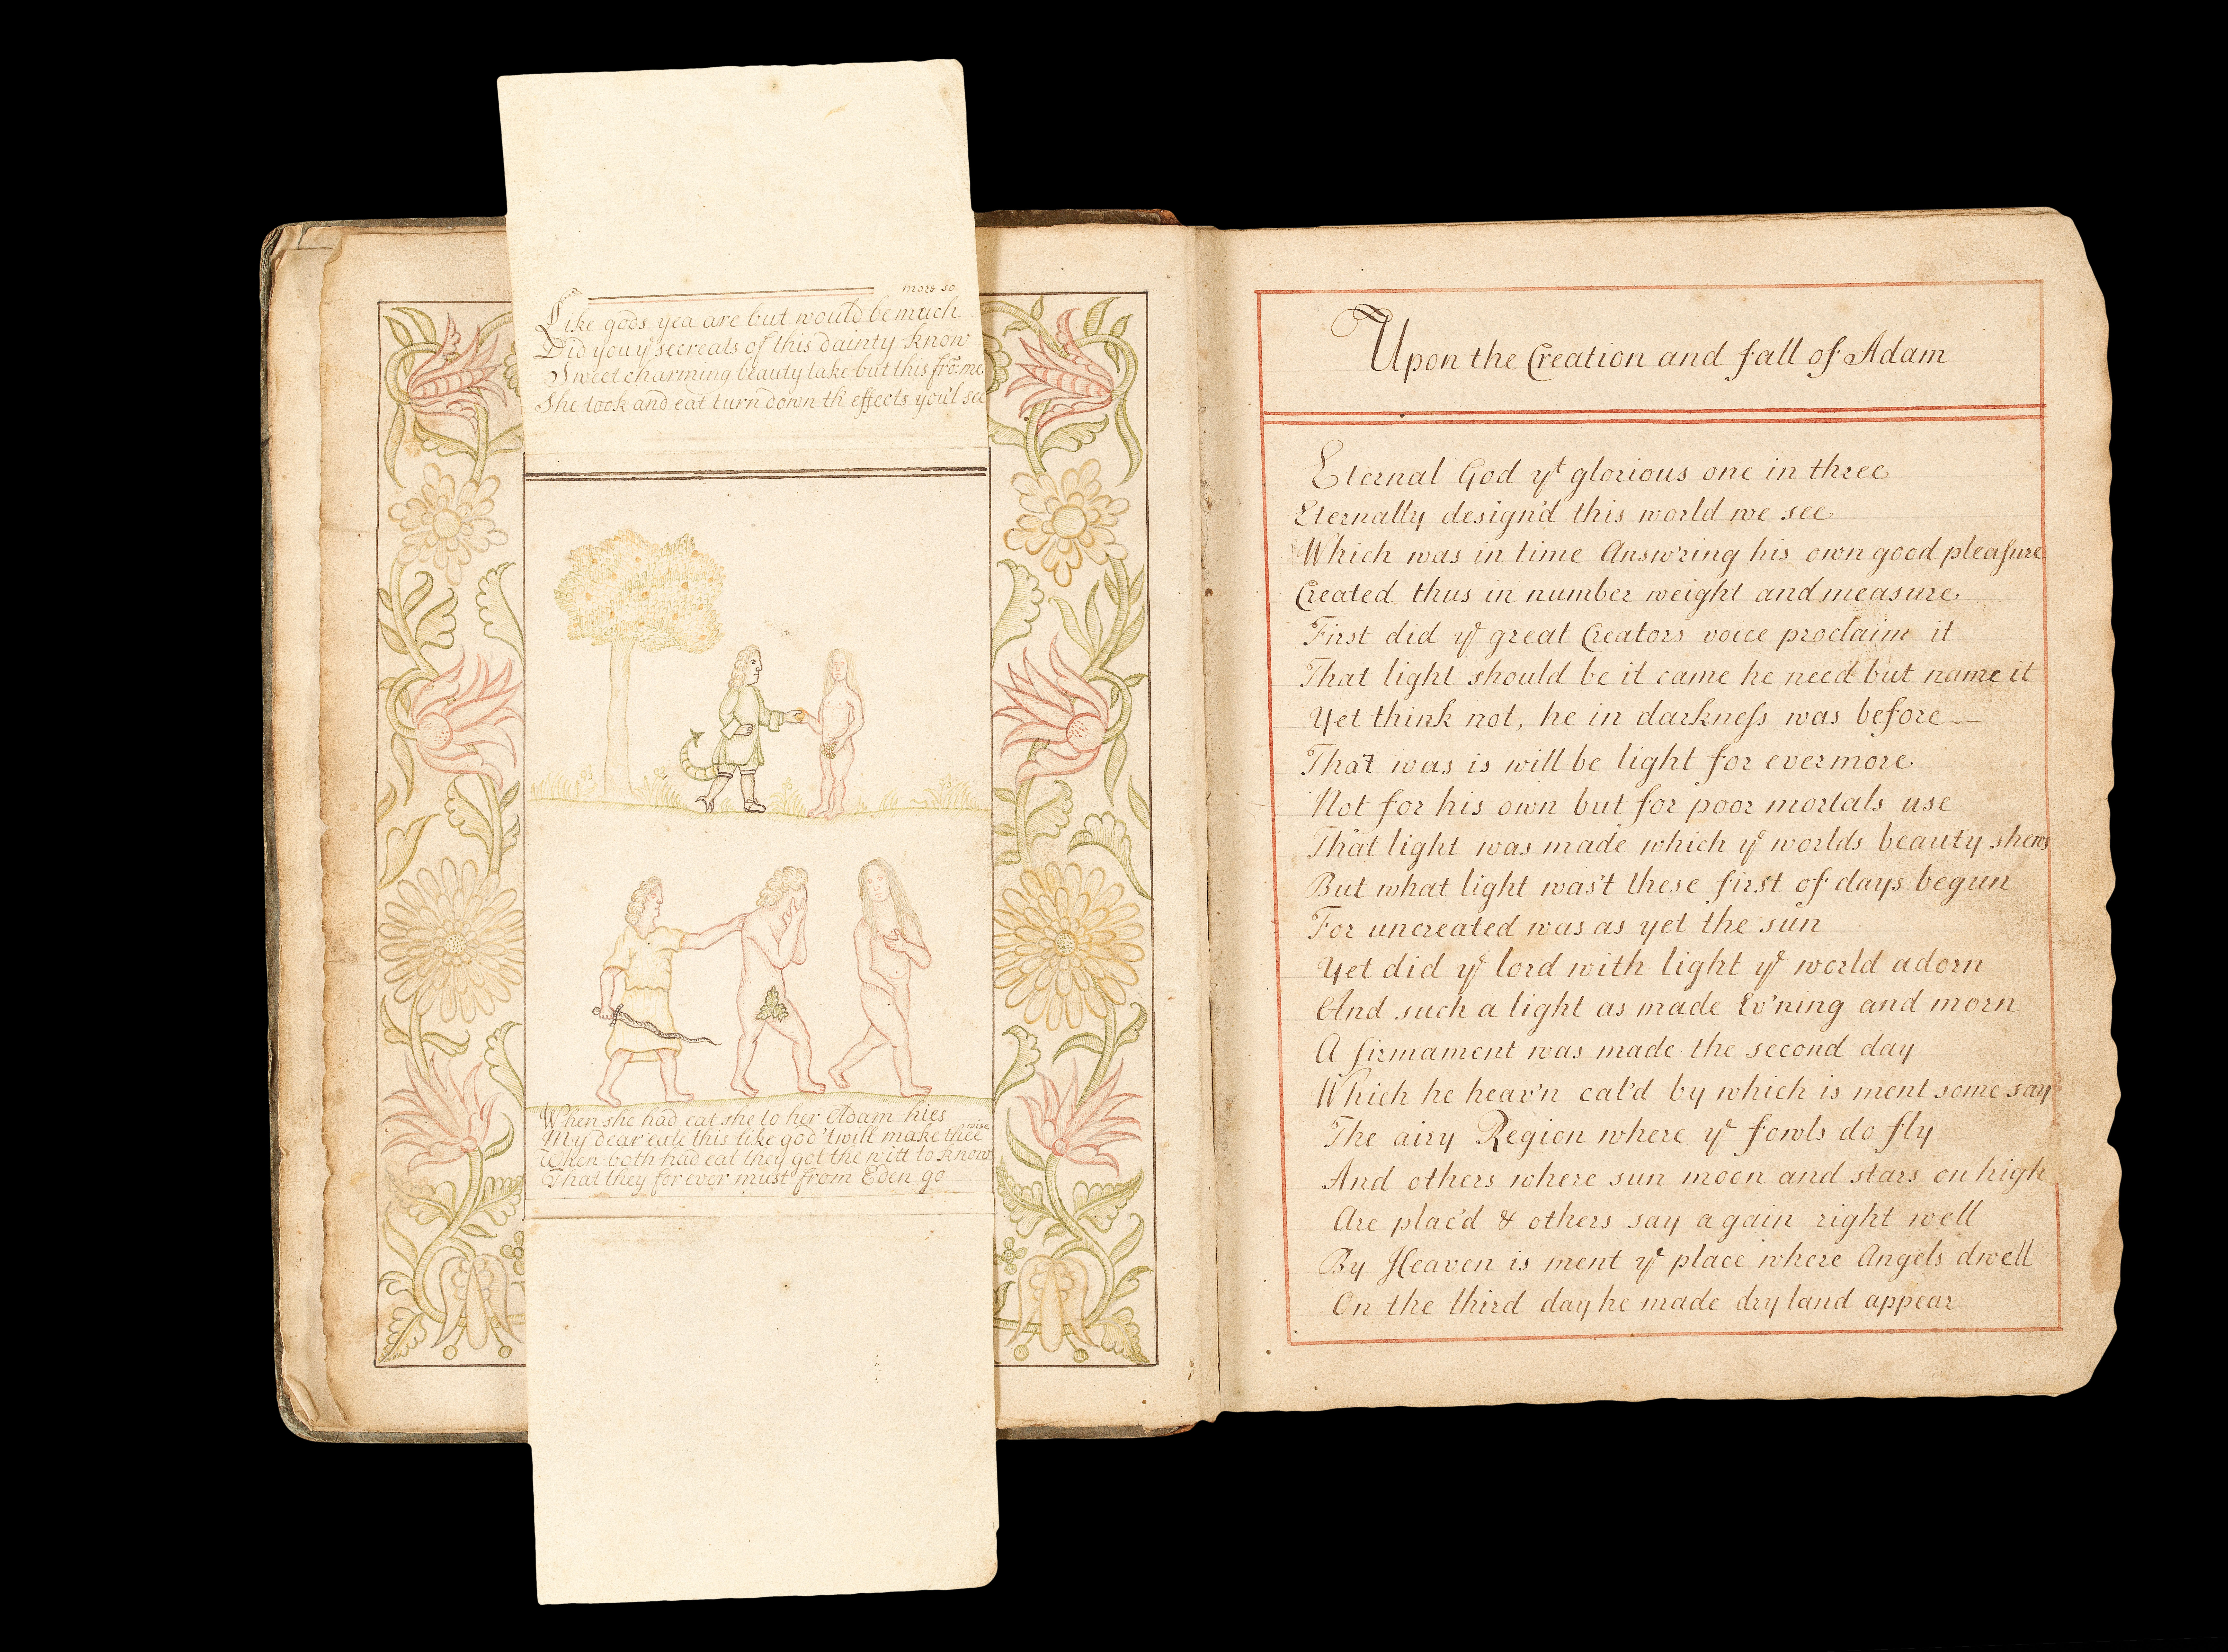 more so
Like gods yea are but would be much
Did you yᵉ secreats of this dainty know
Sweet charming beauty take but this fro: me
She took and eat turn down th' effects you'l see
When she had eat she to her Adam hies
wise
My dear eate this like god 'twill make thee
When both had eat they got the witt to know
That they for ever must from Eden go
Upon the Creation and fall of Adam
Eternal God yᵗ glorious one in three
Eternally design'd this world we see
Which was in time Answ'ring his own good pleaſure
Created thus in number weight and measure
First did yᵉ great Creators voice proclaim it
That light should be it came he need but name it
Yet think not, he in darkneſs was before —
That was is will be light for evermore
Not for his own but for poor mortals use
That light was made which yᵉ worlds beauty shews
But what light was't these first of days begun
For uncreated was as yet the sun
Yet did yᵉ lord with light yᵉ world adorn
And such a light as made Ev'ning and morn
A firmament was made the second day
Which he heav'n cal'd by which is ment some say
The airy Region where yᵉ fowls do fly
And others where sun moon and stars on high
Are plac'd & others say again right well
By Heaven is ment yᵉ place where Angels dwell
On the third day he made dry land appear